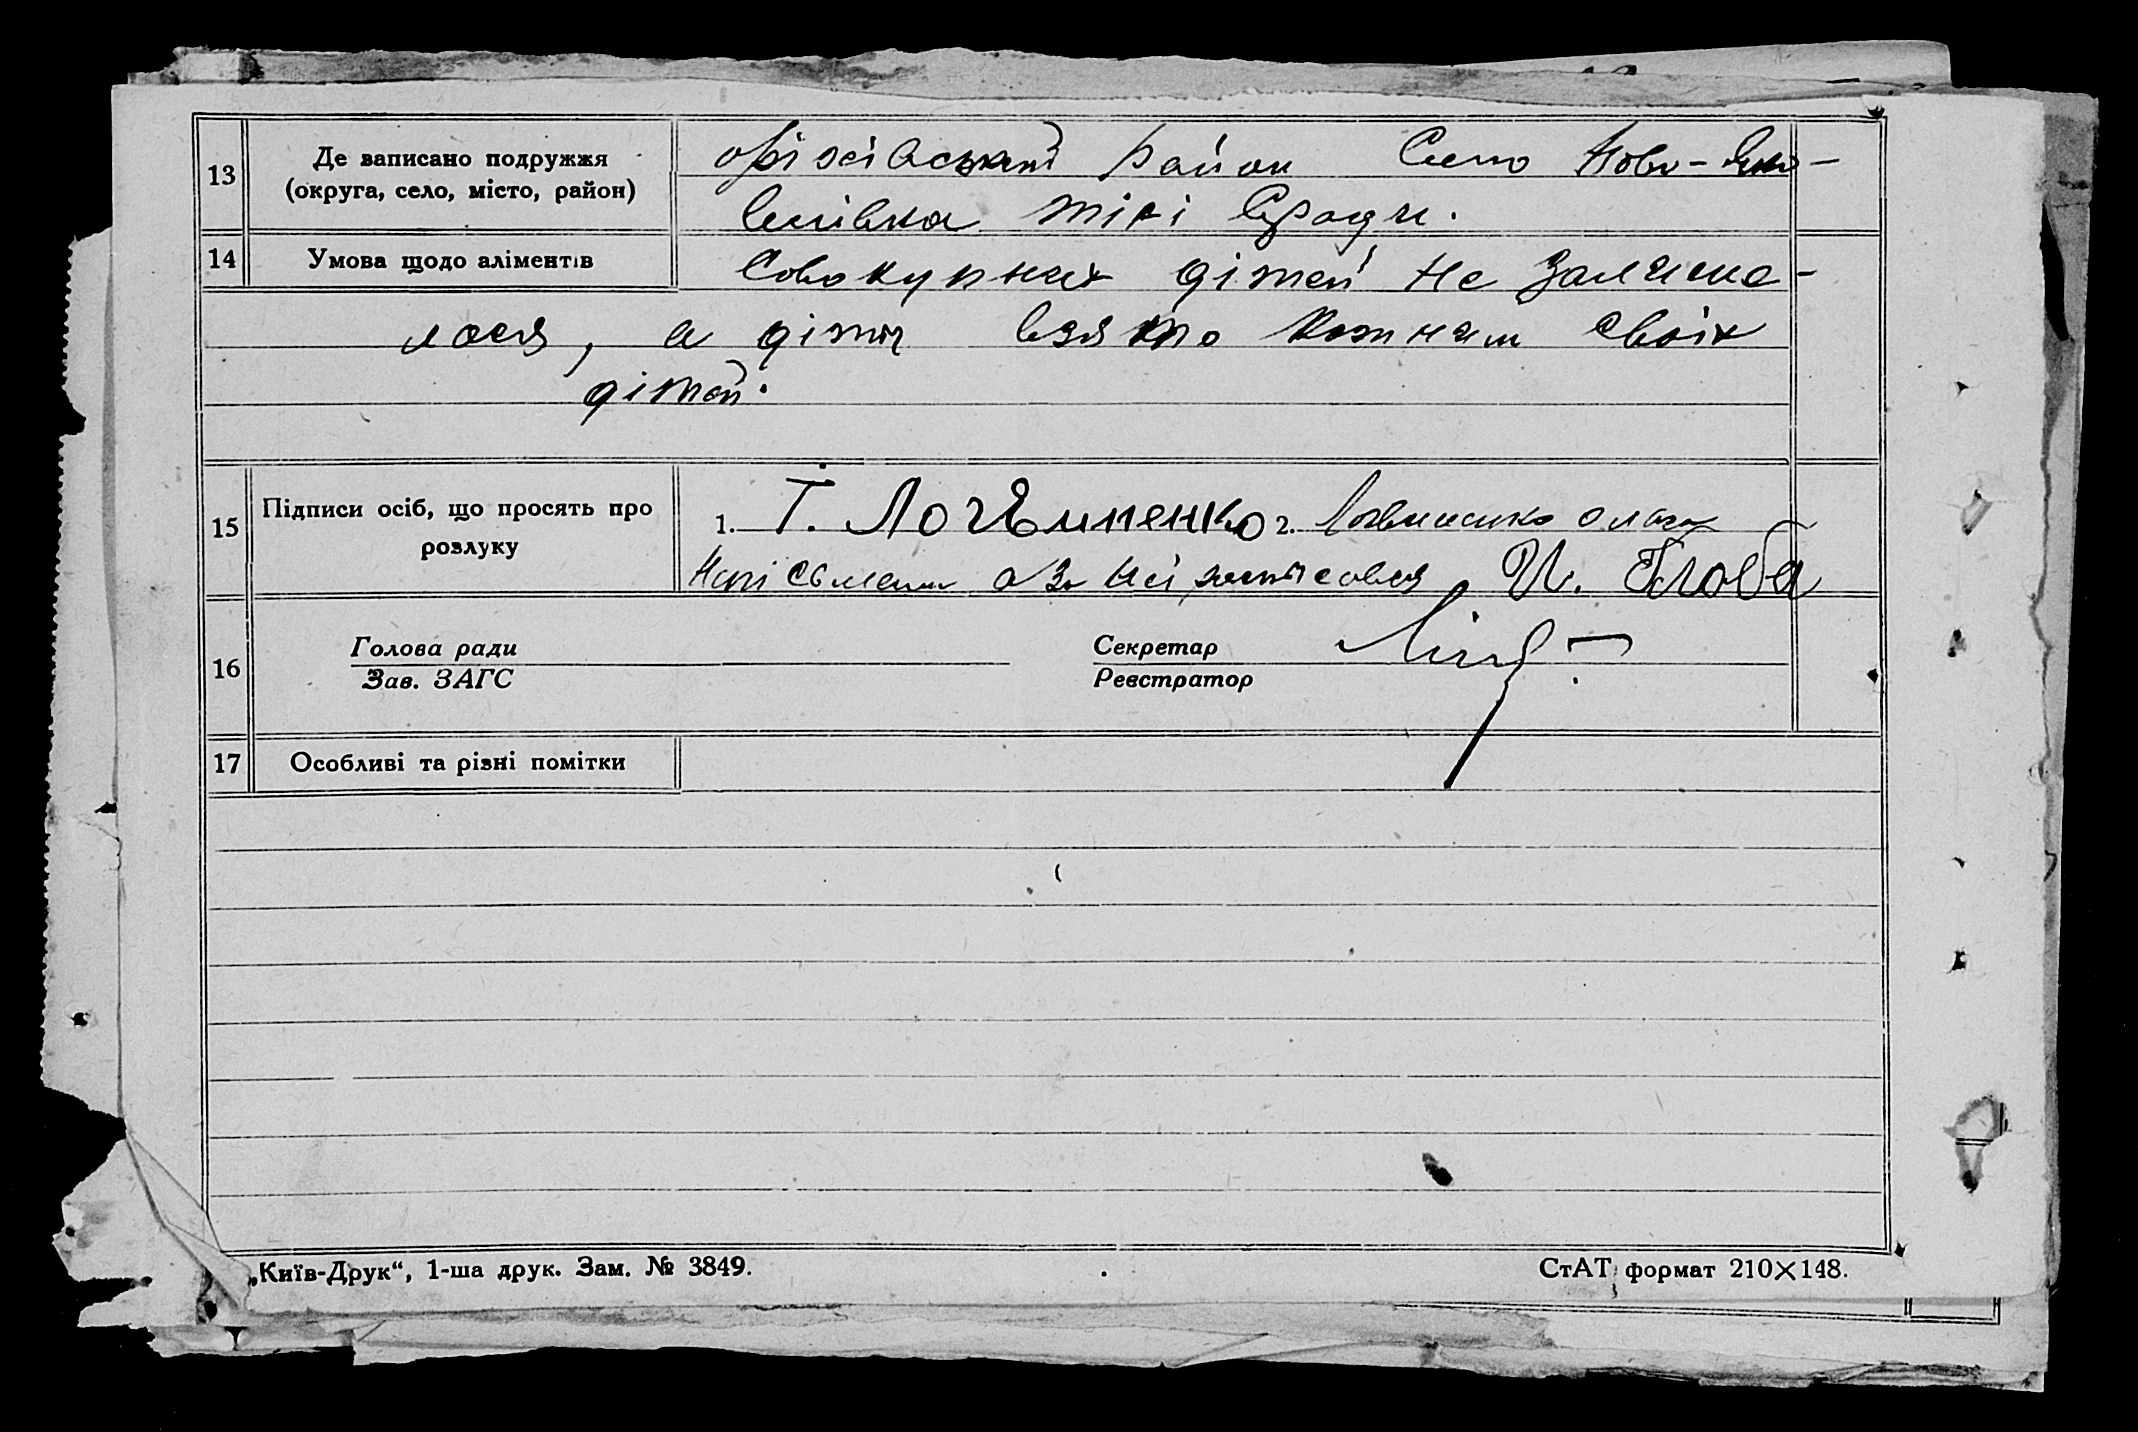 13
Де записано подружжя
(округа, село, місто, район)
оріхівський район Село Ново-Яко-
влівка тікі Сради.
14
Умова щодо аліментів
Совокупних дітей не залиша-
лося, а діти взято кожним своїх
дітей.
15
Підписи осіб, що просять про
розлуку
1. Т. Логвиненко 2. Логвиненко
а за неї росписовся И. Глоба
16
Голова ради
Зав. ЗАГС
Секретар
Реєстратор
17
Особливі та різні помітки
„Київ-Друк“, 1-ша друк. Зам. № 3849.
СтАТ формат 210×148.